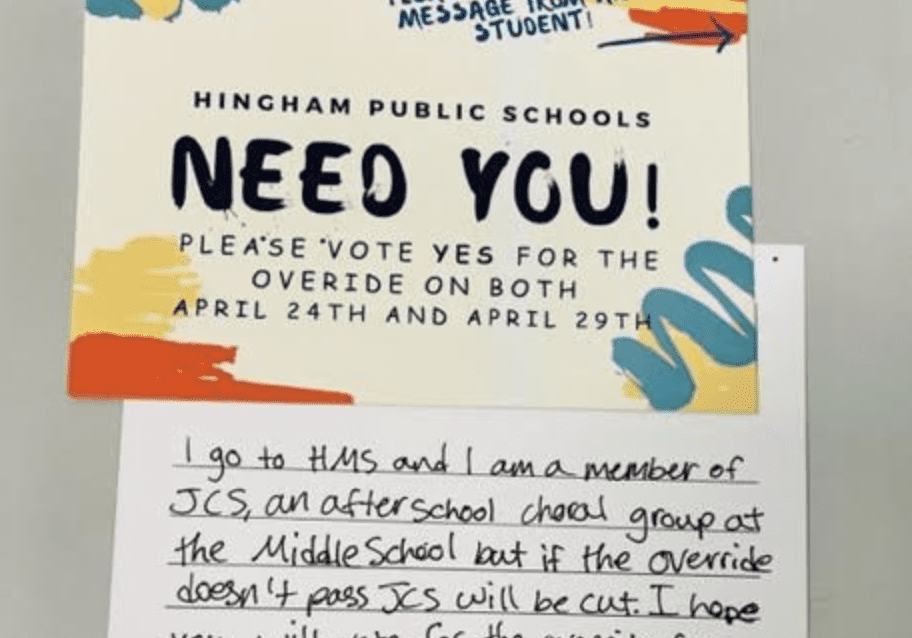 MESSAGE FROM
STUDENT!
HINGHAM PUBLIC SCHOOLS
NEED YOU!
PLEASE VOTE YES FOR THE
OVERIDE ON BOTH
APRIL 24TH AND APRIL 29TH
I go to HMS and I am a member of
JCS, an afterschool choral group at
the Middle School but if the override
doesn't pass JCS will be cut. I hope